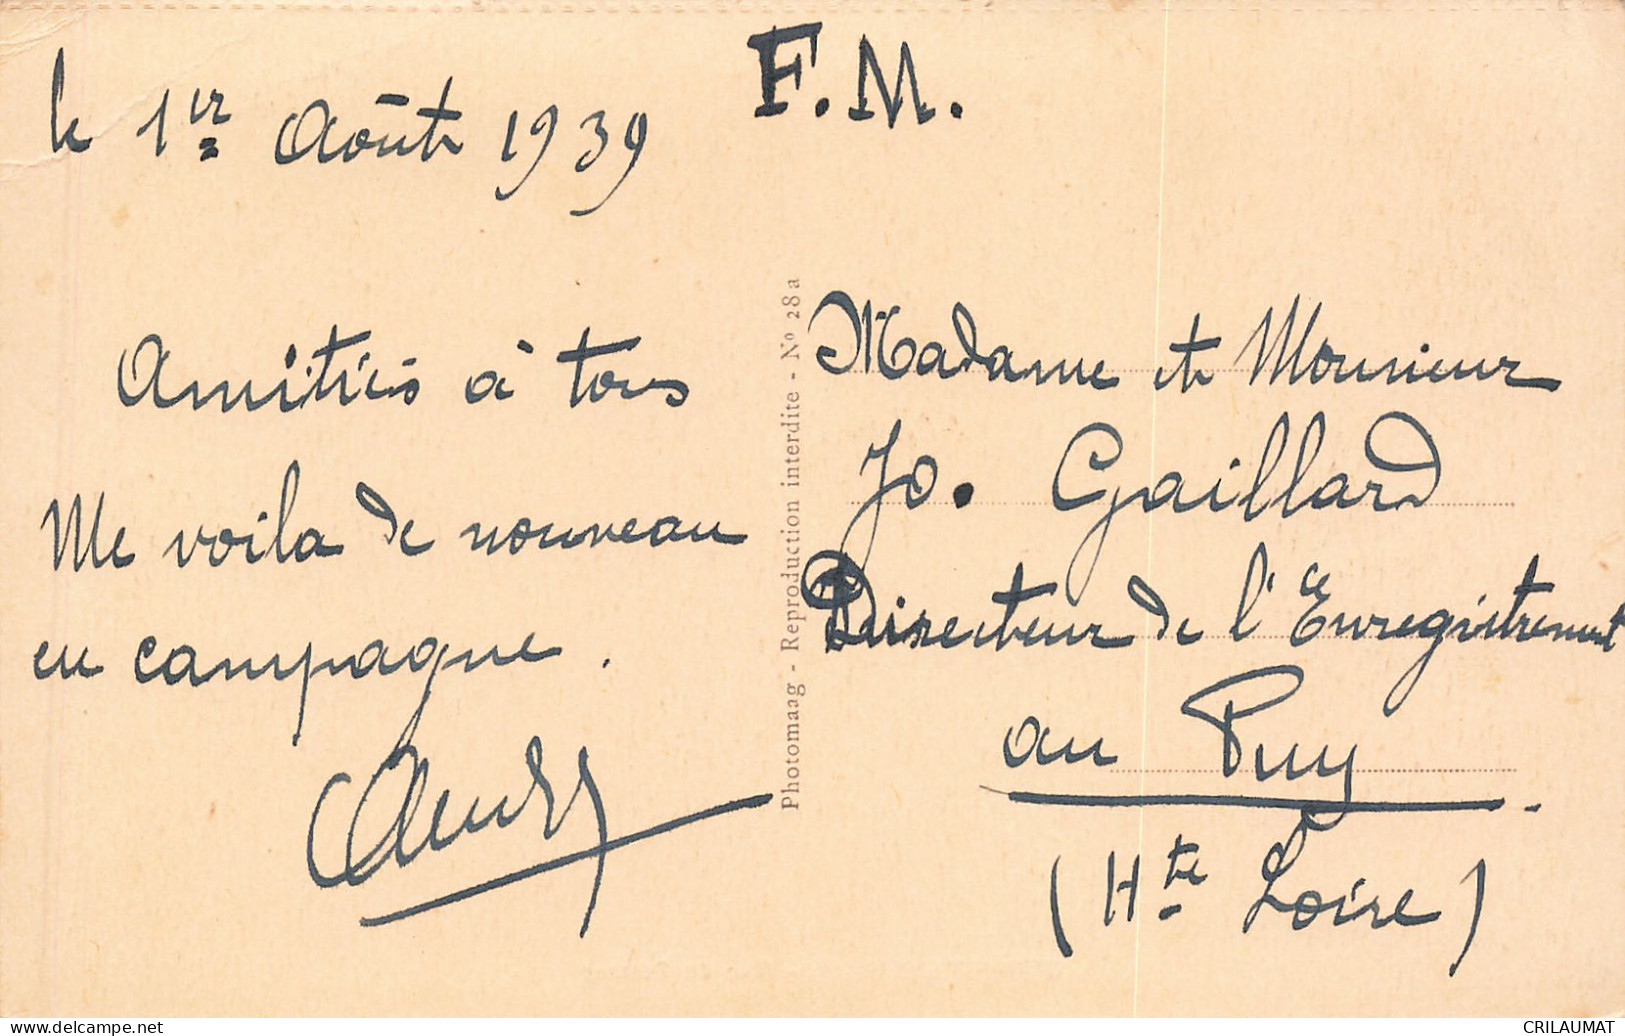 le 1er Août 1939
F.M.
Amitiés à tous
Me voila de nouveau
en campagne.
Photomaag - Reproduction interdite - Nº 28a
Madame et Monsieur
Jo. Gaillard
Directeur de l'Enregistrement
au Puy
(Hte Loire)
www.delcampe.net
CRILAUMAT